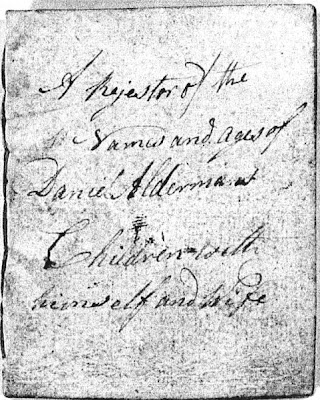 A Rejestor of the
Names and ages of
Daniel Aldermans
Children with
himself and wife